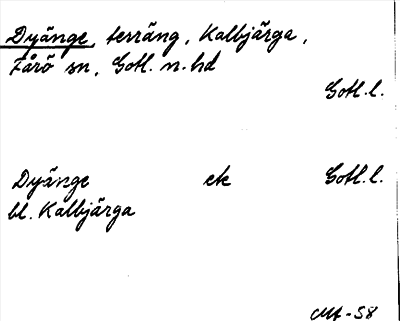 Dyänge, terräng, Kalbjärga,
Fårö sn, Gotl. n. hd
Gotl. l.
Dyänge ek Gotl. l.
bl. Kalbjärga
-58